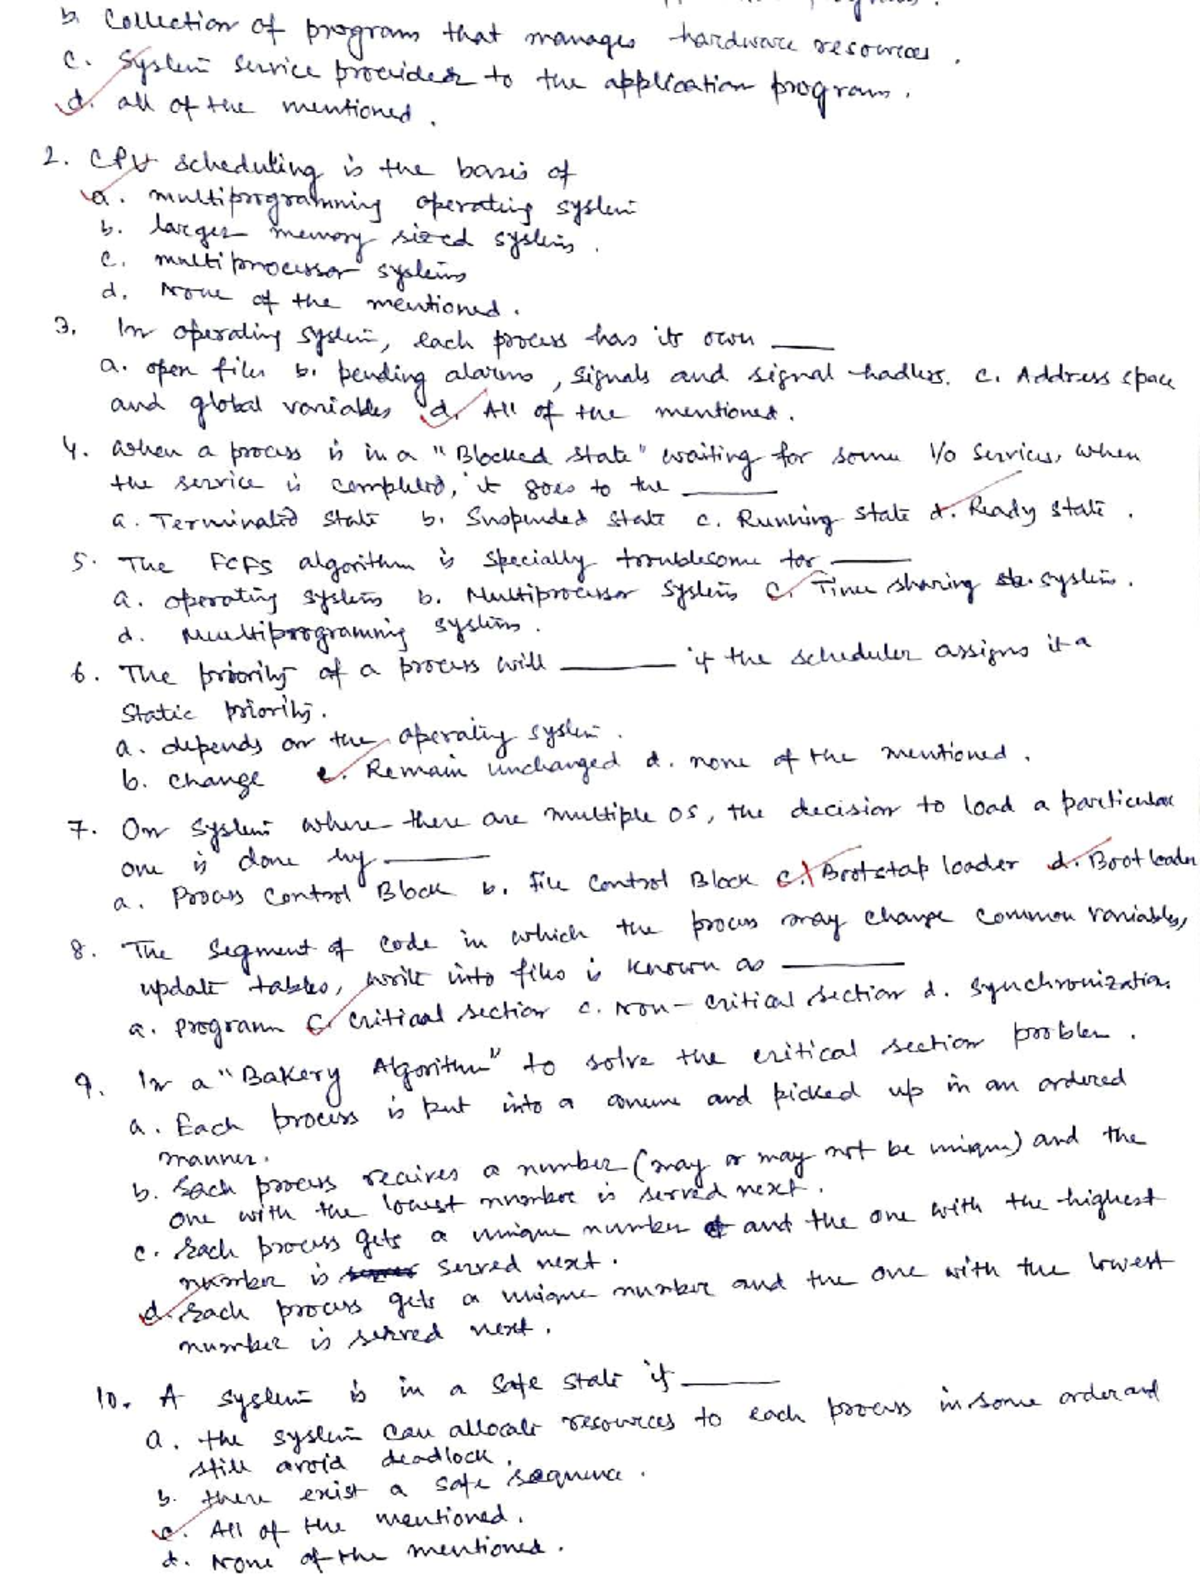 b. Collection of programs that manages hardware resources.
c. System service provider to the application programs.
d. all of the mentioned.
2. CPU scheduling is the basis of
a. multiprogramming operating system
b. larger memory sized systems.
c. multiprocessor systems
d. None of the mentioned.
3. In operating system, each process has its own ____
a. open files b. pending alarms, signals and signal hadlers. c. Address space
and global variables d. All of the mentioned.
4. When a process is in a "Blocked state" waiting for some I/O services, when
the service is completed, it goes to the ____
a. Terminated state b. Suspended state c. Running state d. Ready state.
5. The FCFS algorithm is specially troublesome for ____
a. operating systems b. Multiprocessor systems c. Time sharing systems.
d. Multiprogramming systems.
6. The priority of a process will ____ if the scheduler assigns it a
Static priority.
a. depends on the operating system.
b. change c. Remain unchanged d. none of the mentioned.
7. On system where there are multiple OS, the decision to load a particular
one is done by ____
a. Process Control Block b. File Control Block c. Bootstap loader d. Boot loader
8. The segment of code in which the process may change common variables,
update tables, write into files is known as ____
a. program critical section c. Non-critical section d. Synchronization.
9. In a "Bakery Algorithm" to solve the critical section problem.
a. Each process is put into a and picked up in an ordered
manner.
b. Each process recives a number (may or may not be unique) and the
one with the lowest number is served next.
c. Each process gets a unique number and the one with the highest
number is served next.
d. Each process gets a unique number and the one with the lowest
number is served next.
10. A system is in a safe state if ____
a. the system can allocate resources to each process in some order and
still avoid deadlock.
b. there exist a safe sequence.
c. All of the mentioned.
d. None of the mentioned.